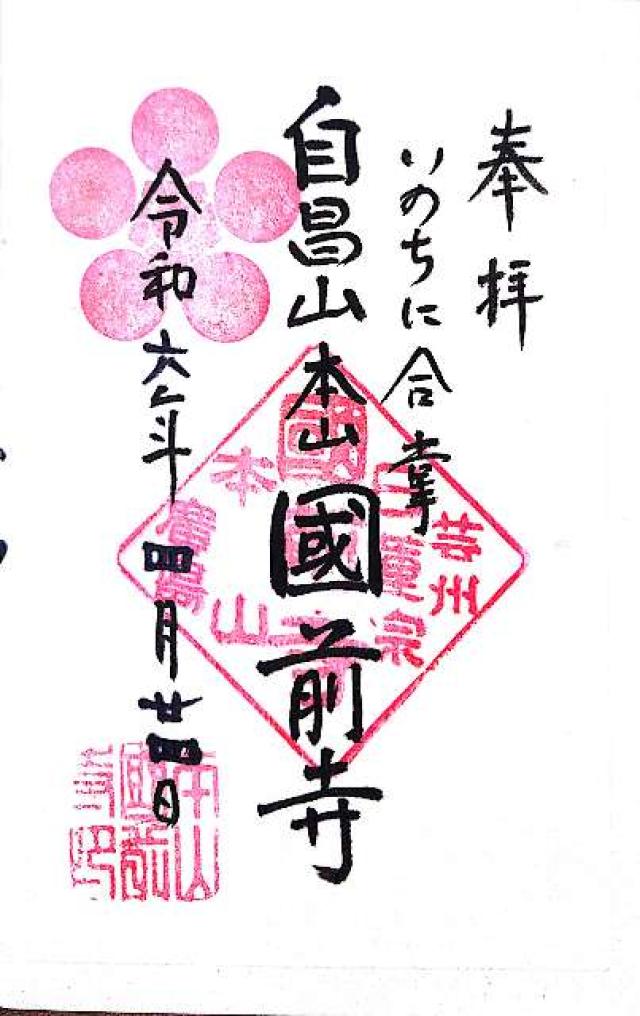 奉拝
いのちに合掌
自昌山本山國前寺
令和六年四月廿四日
芸州
日蓮宗
國前寺
本山
廣島
本山國前寺印